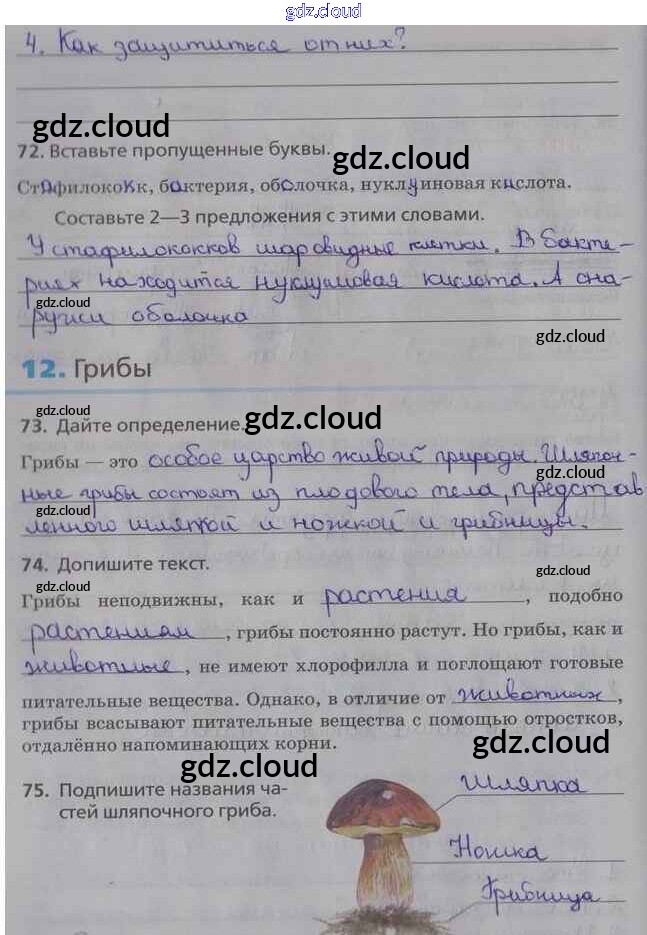 gdz.cloud
4. Как защититься от них?
gdz.cloud
72. Вставьте пропущенные буквы.
gdz.cloud
Стафилококк, бактерия, оболочка, нуклуиновая кислота.
Составьте 2—3 предложения с этими словами.
У стафилококков шаровидные клетки. В бакте-
риях находится нуклуиновая кислота. А сна-
gdz.cloud
ружи оболочка
gdz.cloud
12. Грибы
gdz.cloud
gdz.cloud
73. Дайте определение.
Грибы — это особое царство живой природы. Шляпоч-
gdz.cloud
ные грибы состоят из плодового тела, представ
ленного шляпкой и ножкой и грибницы.
74. Допишите текст.
gdz.cloud
gdz.cloud
Грибы неподвижны, как и растения, подобно
растениям, грибы постоянно растут. Но грибы, как и
животные, не имеют хлорофилла и поглощают готовые
питательные вещества. Однако, в отличие от животных,
грибы всасывают питательные вещества с помощью отростков,
отдалённо напоминающих корни.
gdz.cloud
gdz.cloud
75. Подпишите названия ча-
стей шляпочного гриба.
Шляпка
Ножка
Грибница